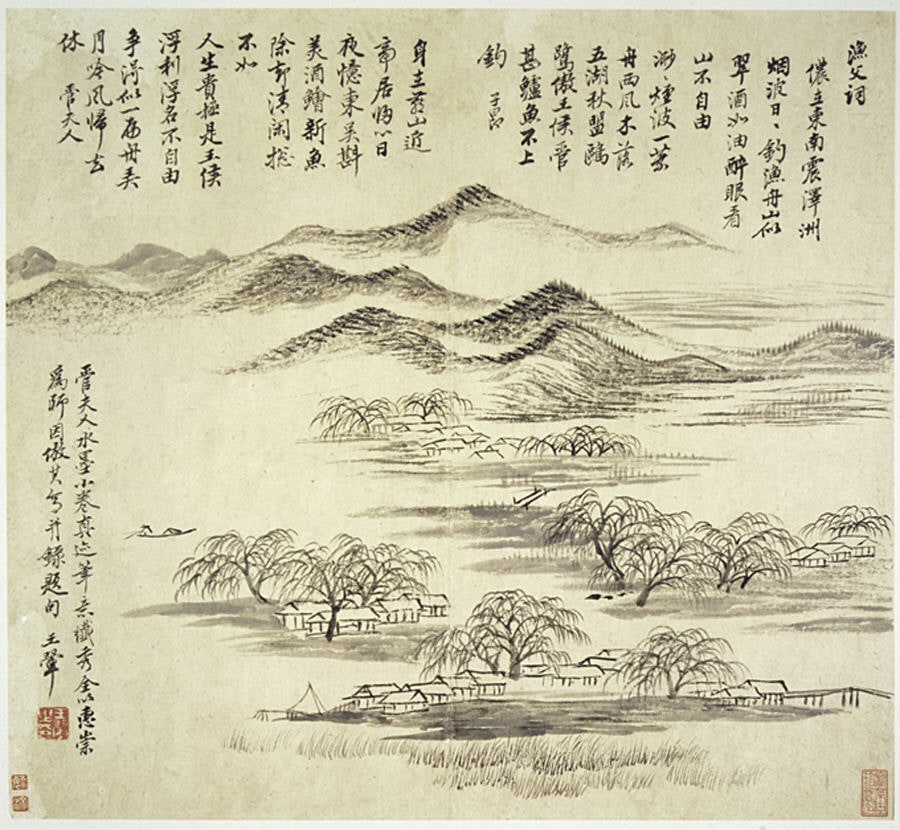 漁父詞
儂在東南震澤洲
烟波日〻釣漁舟山似
翠酒如油醉眼看
山不自由
渺〻煙波一葉
舟西風木落
五湖秋盟鷗
鷺傲王侯管
甚鱸魚不上
鈎 子昂
身在燕山近
帝居歸心日
夜憶東吳斟
美酒鱠新魚
除却清閑總
不如
人生貴極是王侯
浮利浮名不自由
爭得似一扁舟弄
月吟風歸去
休 管夫人
管夫人水墨小卷真迹筆意纖秀全以惠崇
為師因倣其写并錄題句 王翬